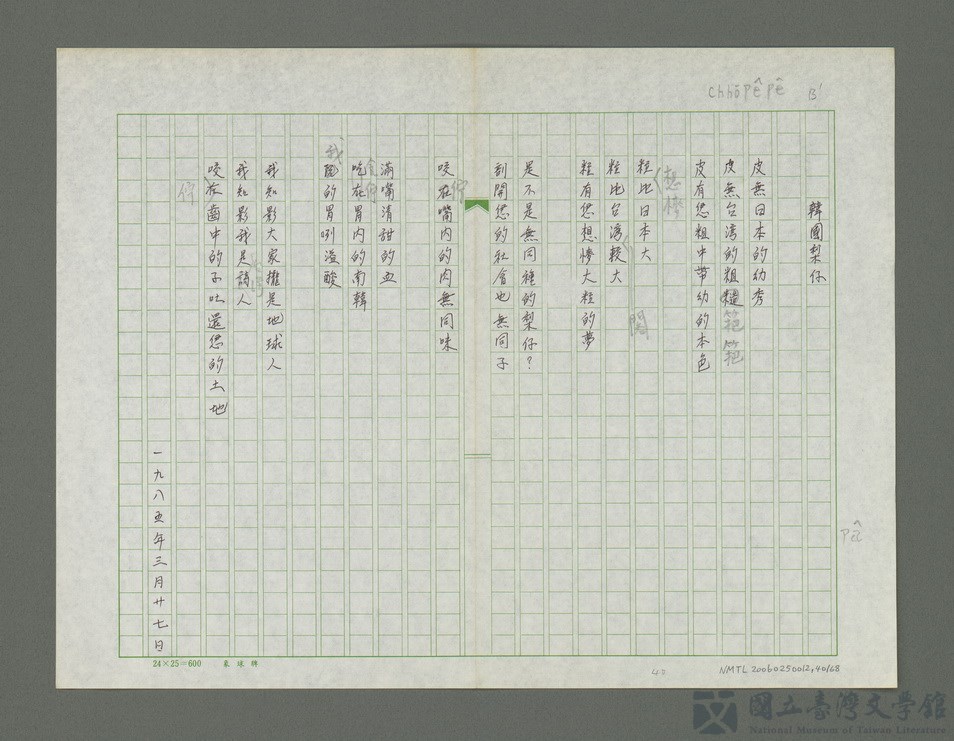 chhō͘ pê pê
B'
韓國梨仔
皮無日本的幼秀
皮無台湾的粗糙
笆 笆
皮有您粗中帶幼的本色
粒比日本大
粒比台湾較大
闊
粒有您想慘大粒的夢
是不是無同種的梨仔?
剖開您的社會也無同子
咬在嘴內的肉無同味
佇
滿嘴清甜的血
吃在胃內的南韓
我的胃咧溢酸
我知影大家攏是地球人
我知影我是詩人
咬在齒中的子吐還您的土地
佇
一九八五年三月廿七日
24×25=600
pê
40
NMTL20060250012,40/68
國立臺灣文學館
National Museum of Taiwan Literature